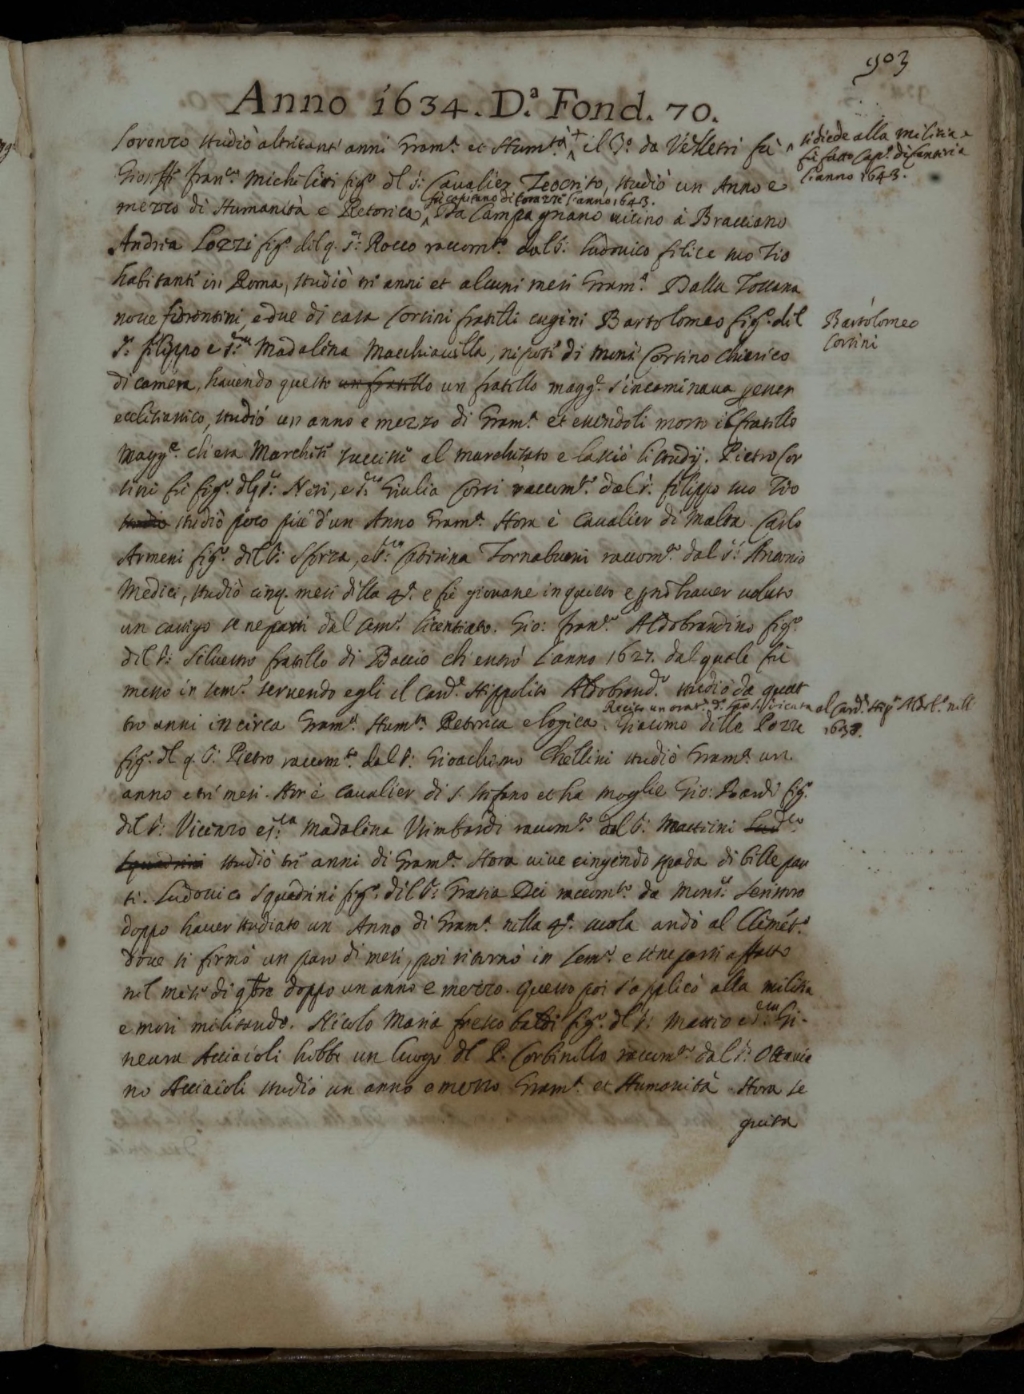 903
Anno 1634. D.ª Fond. 70.
Lorenzo studiò altritanti anni Gram.ª et Hum.tà + il S.r da Velletri fù ^
si diede alla militia e
fù fatto Cap.º di fanteria
l'anno 1643.
Gioseffe Fran.co Micheletti fig.º del S.r Cavalier Teocrito, studiò un Anno e
fù capitano di corazze l'anno 1643.
mezzo di Humanità e Retorica ^ Da Campagnano vicino à Bracciano
Andrea Lozzi fig.º del q. S.r Rocco raccom.to dal S.r Ludovico felice suo Zio
habitanti in Roma, studiò tri anni et alcuni mesi Gram.ª Dalla Toscana
nove fiorentini, e due di casa Corsini fratelli cugini Bartolomeo fig.º del
Bartolomeo
Corsini
S.r filippo e S.ra Madalina Macchiavella, nipoti di mons.r Corsino Chierico
di camera, havendo questo un fratello un fratello magg.re s'incaminava per
ecclesiastico, studiò un anno e mezzo di Gram.ª et essendoli morto il fratello
magg.re ch'era Marchese successe al marchesato e lasciò li studij. Pietro Cor
sini fù fig.º del S.r Neri, e S.ra Giulia Corsi raccom.to dal S.r filippo suo Zio
studio studiò poco più d'un Anno Gram.ª Hora è Cavalier di Malta Carlo
Armeni fig.º del S.r Sforza, e S.ra Caterina Tornabuoni raccom.to dal S.r Antonio
Medici, studiò cinq. mesi della 4.ª e fù giovane inquieto e non haver voluto
un castigo se ne partì dal Sem.º licentiato. Gio: Fran.co Aldobrandino fig.º
del S.r Silvestro fratello di Baccio ch'entrò l'anno 1627. dal quale fù
messo in sem.º servendo egli il Card.e Hippolito Aldobrand.º studiò da quat
Recitò un orat. d. Spo S. dicata al Card. Hip.º Aldob.º nell
1638.
tro anni in circa Gram.ª Hum.tà Retorica e logica. Giacomo delle Pozze
fig.º del q. S.r Pietro raccom.to dal S.r Gioachimo Chellini studiò Gram.ª un
anno e tri mesi. Hor è Cavalier di S. Stefano et ha moglie Gio: Bardi fig.º
del S.r Vicenzo e S.ra Madalina Rimbardi raccom.to dal S.r Mattini Lud.co
Squadrini studiò tri anni di Gram.ª Hora vive cingendo spada di belle par
ti. Ludovico Squadrini fig.º del S.r Grazia Dei raccom.to da Mons.r
doppo haver studiato un Anno di Gram.ª nella 4.ª scuola andò al Clemét.º
dove si fermò un paro di mesi, poi ritornò in Sem.º e se ne partì affatto
nel mese di 9bre doppo un anno e mezzo. Questo poi s'applicò alla militia
e morì militando. Nicolo Maria frescobaldi fig.º del S.r Matteo e S.ra Gi-
nevra Acciaioli hebbe un luogo del P. Corbinello raccom.to dal S.r Ottavia
no Acciaioli studiò un anno e mezzo Gram.ª et Humanità Hora se
guita